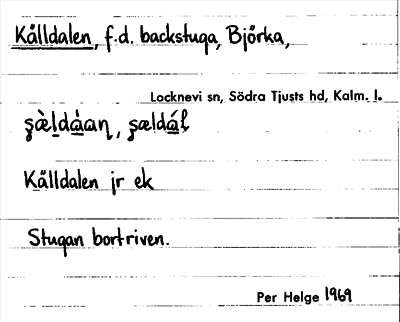 Källdalen, f.d. backstuga, Björka,
Locknevi sn, Södra Tjusts hd, Kalm. l.
Källdalen jr ek
Stugan bortriven.
Per Helge 1969